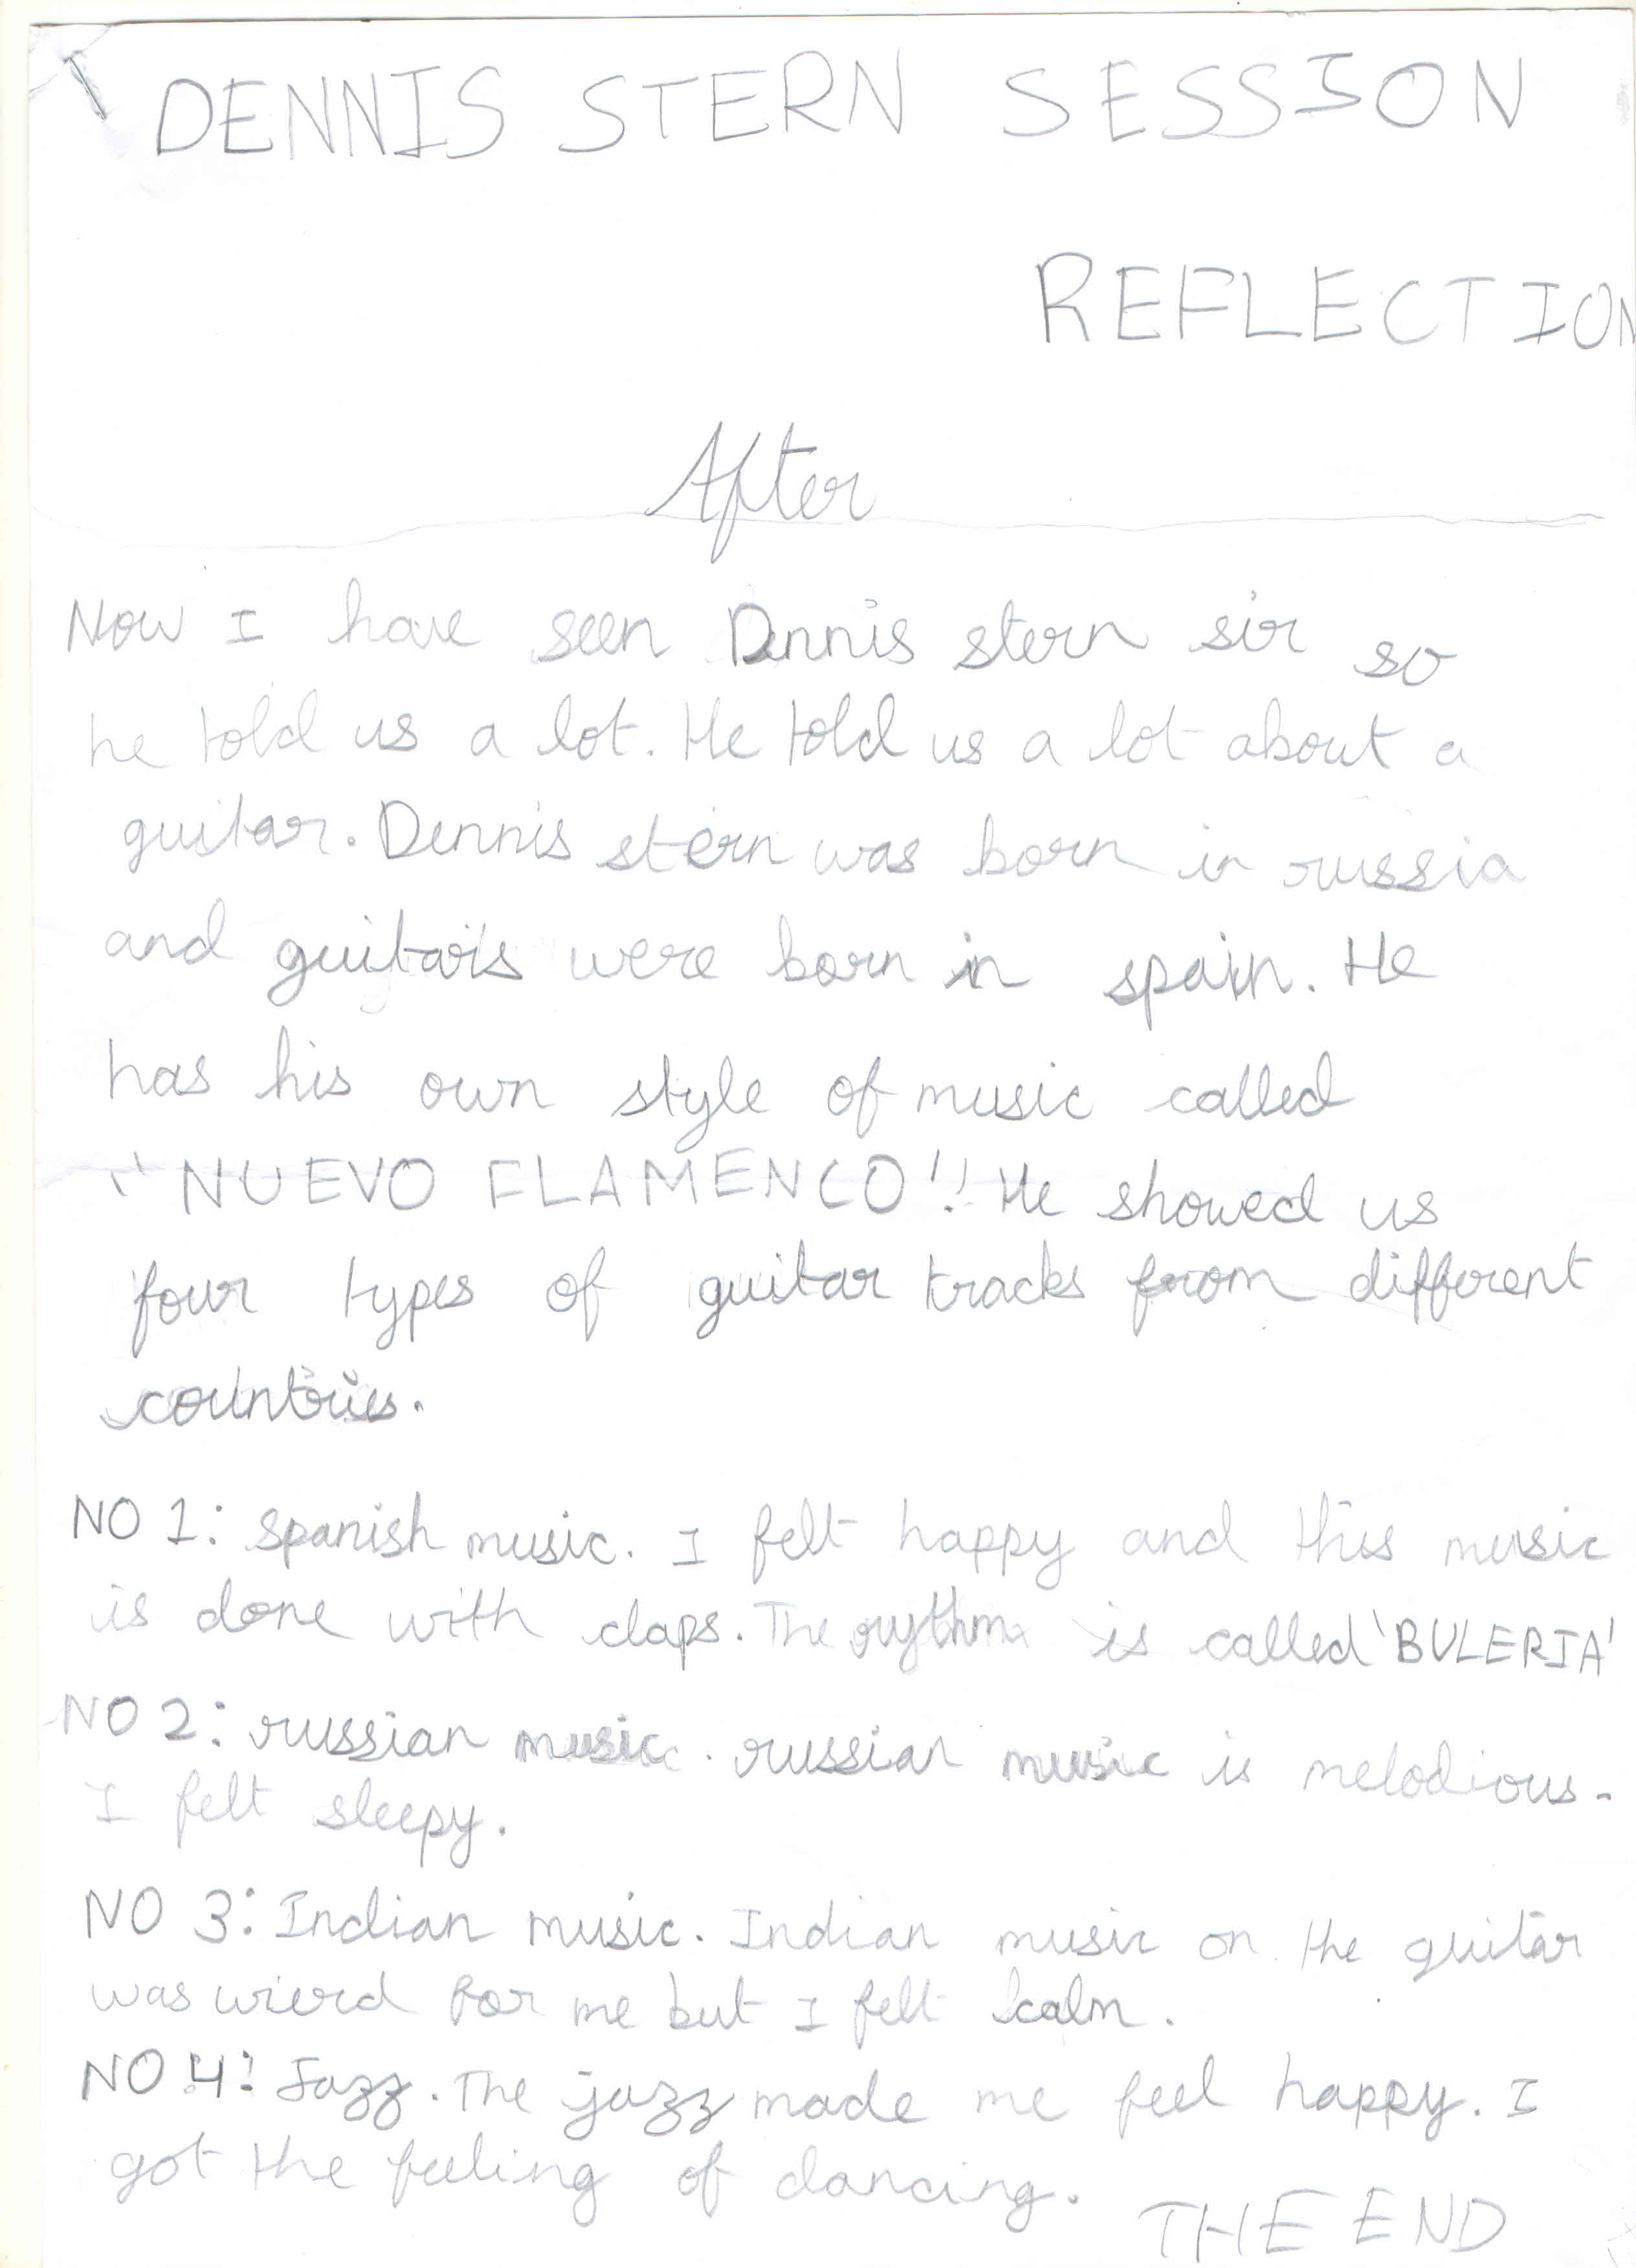 DENNIS STERN SESSION
REFLECTION
After
Now I have seen Dennis stern sir so
he told us a lot. He told us a lot about a
guitar. Dennis stern was born in russia
and guitars were born in spain. He
has his own style of music called
"NUEVO FLAMENCO!! He showed us
four types of guitar tracks from different
countries.
NO 1: spanish music. I felt happy and this music
is done with claps. The rythm is called 'BULERIA'
NO 2: russian music. russian music is melodious.
I felt sleepy.
NO 3: Indian music. Indian music on the guitar
was wierd for me but I felt calm.
NO 4: Jazz. The jazz made me feel happy. I
got the feeling of dancing.
THE END